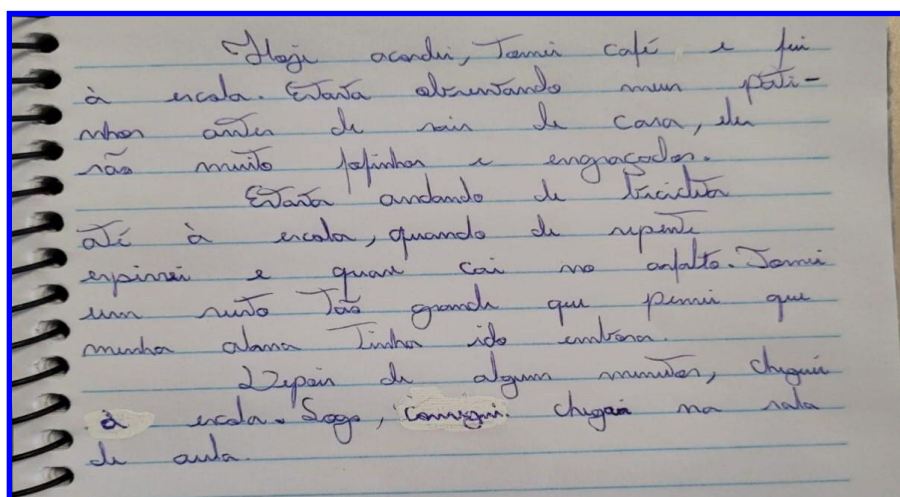 Hoje acordei, Tomei café e fui
à escola. Estava observando meus pati-
nhos antes de sair de casa, eles
são muito fofinhos e engraçados.
Estava andando de bicicleta
até à escola, quando de repente
espirrei e quase cai no asfalto. Tomei
um susto tão grande que pensei que
minha alma tinha ido embora.
Depois de alguns minutos, cheguei
à escola. Logo, consegui chegar na sala
de aula.